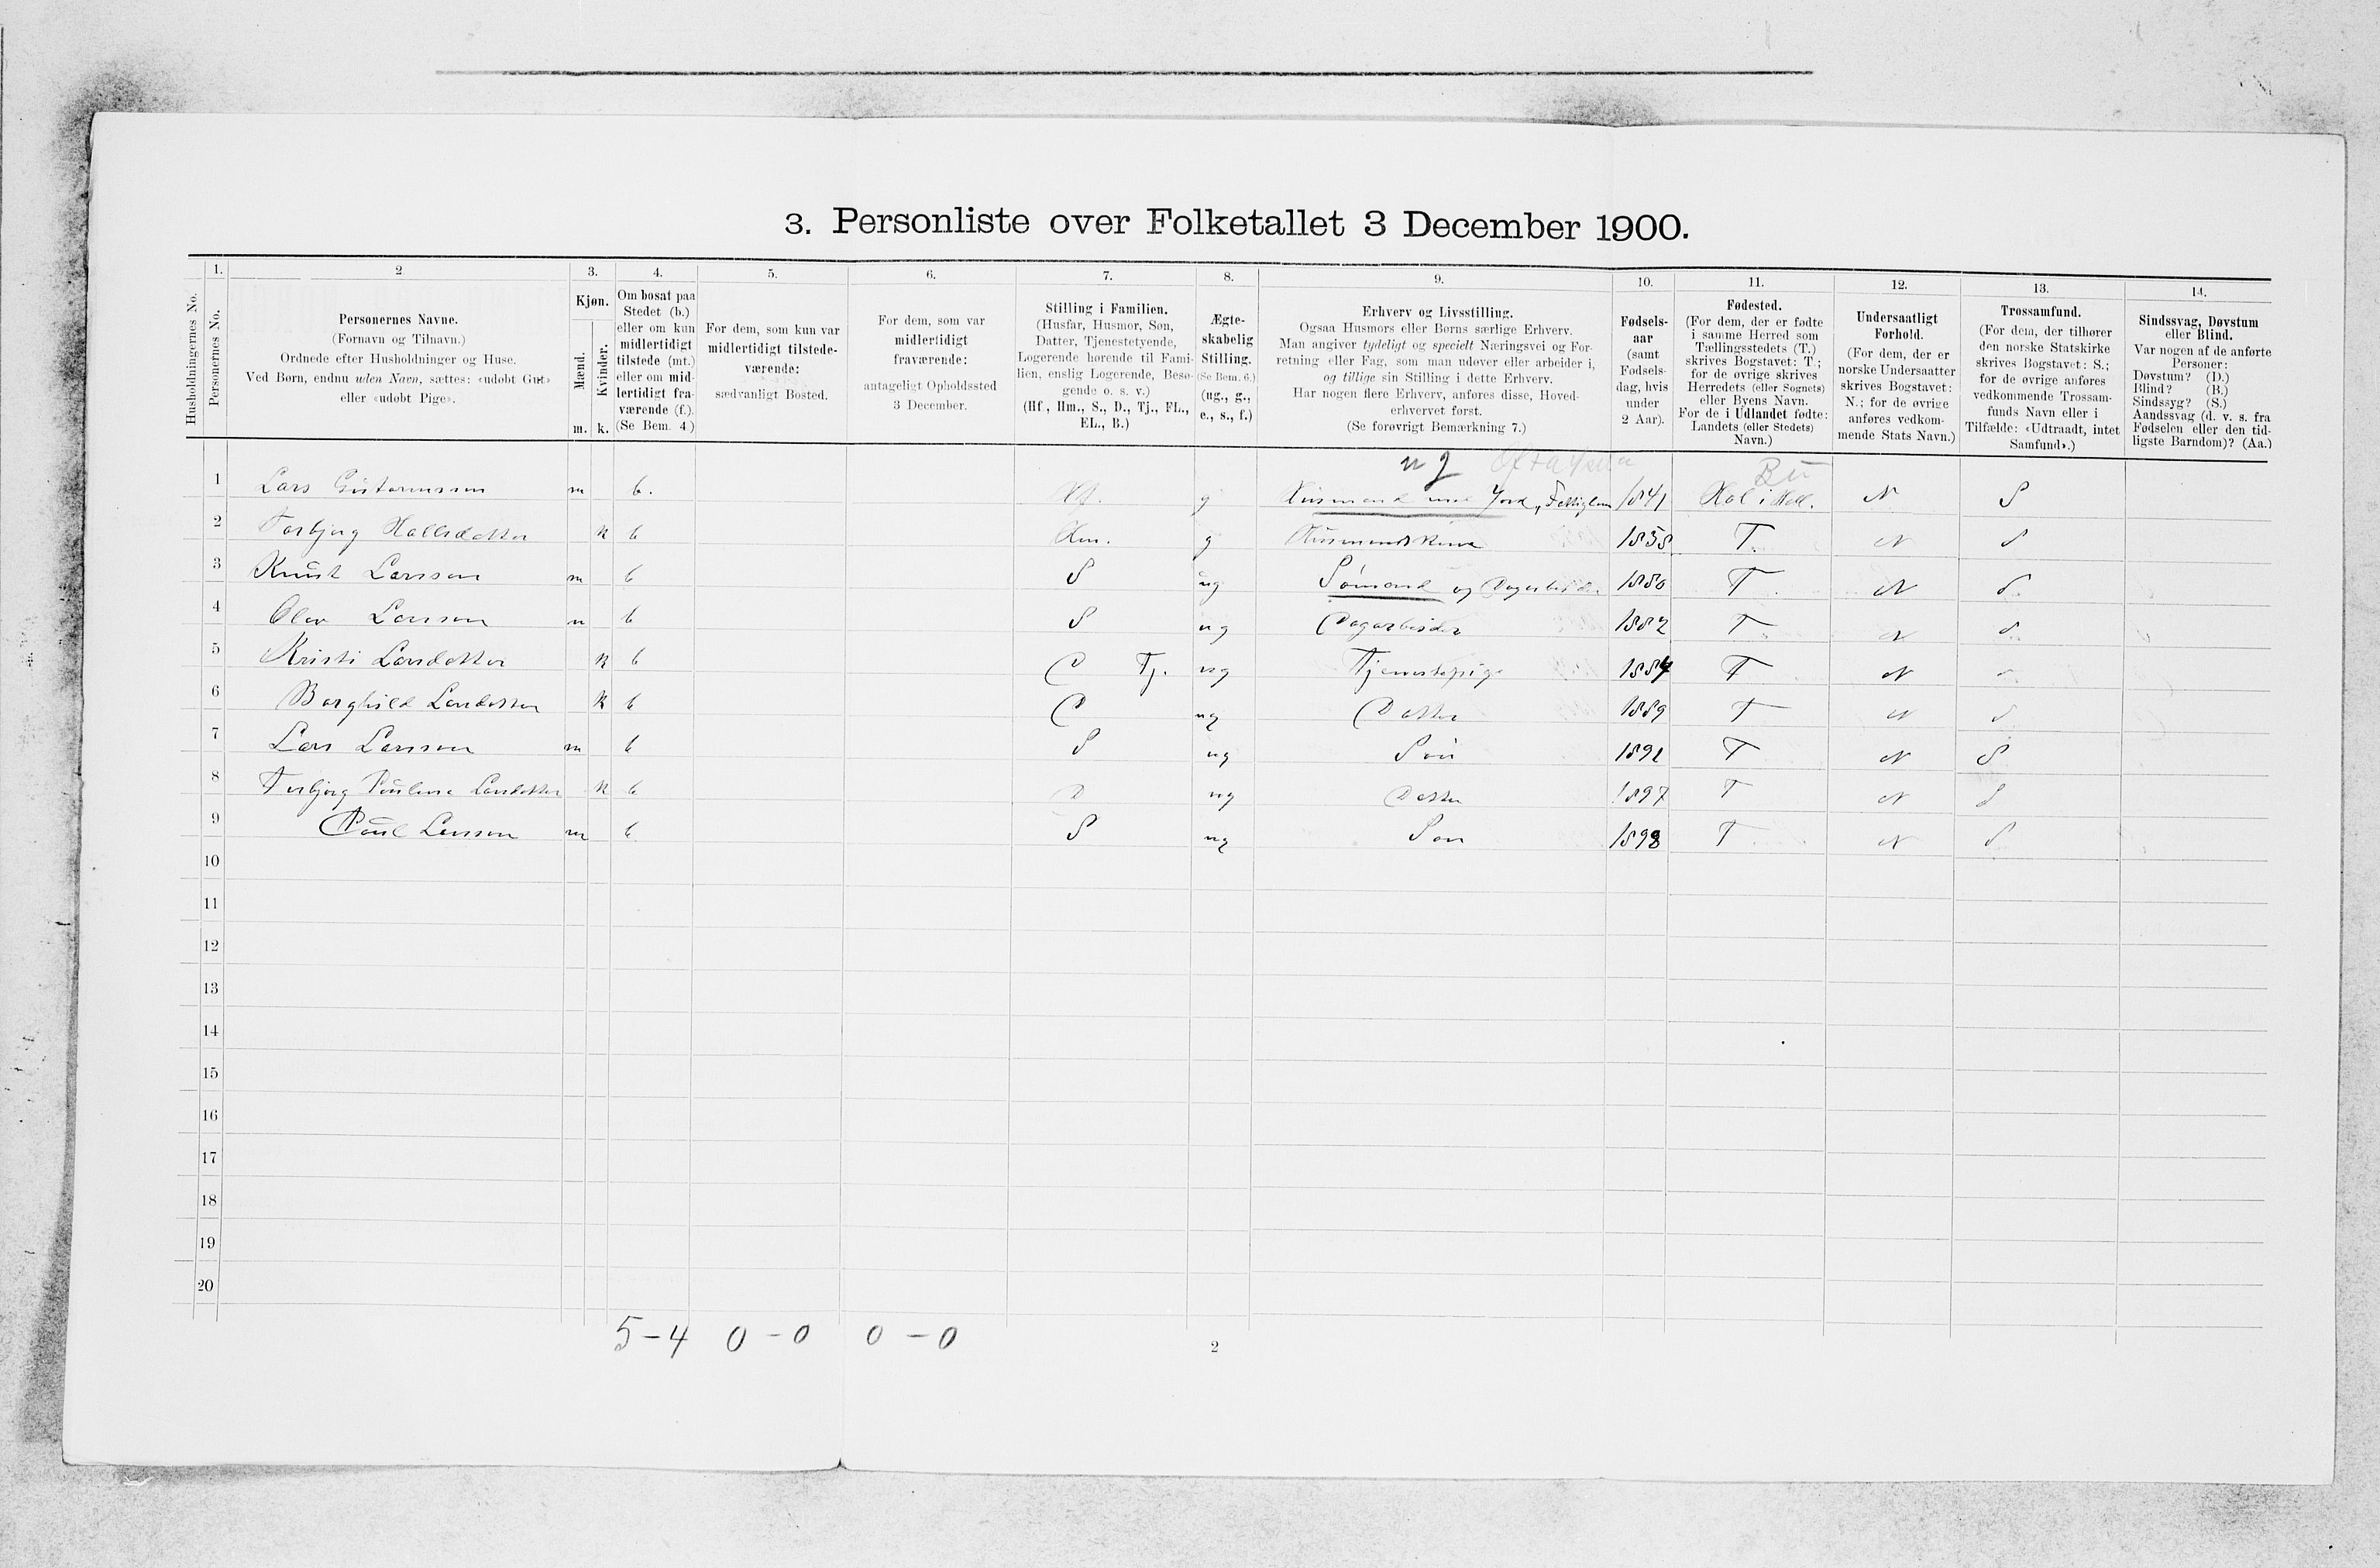 3. Personliste over Folketallet 3 December 1900.
1. 2 3. 4. 5. 6. 7. 8. 9. 10. 11. 12. 13. 14.
Husholdningernes No.
Personernes No.
Personernes Navne.
(Fornavn og Tilnavn.)
Ordnede efter Husholdninger og Huse.
Ved Børn, endnu uden Navn, sættes: «udøbt Gut»
eller «udøbt Pige».
Kjøn.
Mænd.
Kvinder.
m. k.
Om bosat paa
Stedet (b.)
eller om kun
midlertidigt
tilstede (mt.)
eller om mid-
lertidigt fra-
værende (f.).
(Se Bem. 4.)
For dem, som kun var
midlertidigt tilstede-
værende:
sædvanligt Bosted.
For dem, som var
midlertidigt
fraværende:
antageligt Opholdssted
3 December.
Stilling i Familien.
(Husfar, Husmor, Søn,
Datter, Tjenestetyende,
Logerende hørende til Fami-
lien, enslig Logerende, Besø-
gende o. s. v.)
(Hf., Hm., S., D., Tj., FL.,
EL., B.)
Ægte-
skabelig
Stilling.
(Se Bem. 6.)
(ug., g.,
e., s., f.)
Erhverv og Livsstilling.
Ogsaa Husmors eller Børns særlige Erhverv.
Man angiver tydeligt og specielt Næringsvei og For-
retning eller Fag, som man udøver eller arbeider i,
og tillige sin Stilling i dette Erhverv.
Har nogen flere Erhverv, anføres disse, Hoved-
erhvervet først.
(Se forøvrigt Bemærkning 7.)
Fødsels-
aar
(samt
Fødsels-
dag, hvis
under
2 Aar).
Fødested.
(For dem, der er fødte
i samme Herred som
Tællingsstedets (T.)
skrives Bogstavet: T.;
for de øvrige skrives
Herredets (eller Sognets)
eller Byens Navn.
For de i Udlandet fødte:
Landets (eller Stedets)
Navn.)
Undersaatligt
Forhold.
(For dem, der er
norske Undersaatter
skrives Bogstavet:
N.; for de øvrige
anføres vedkom-
mende Stats Navn.)
Trossamfund.
(For dem, der tilhører
den norske Statskirke
skrives Bogstavet: S.;
for de øvrige anføres
vedkommende Trossam-
funds Navn eller i
Tilfælde: «Udtraadt, intet
Samfund».)
Sindssvag, Døvstum
eller Blind.
Var nogen af de anførte
Personer:
Døvstum? (D.)
Blind? (B.)
Sindssyg? (S.)
Aandssvag (d. v. s. fra
Fødselen eller den tid-
ligste Barndom)? (Aa.)
Bu
1 Lars m b. Hf. g Husmand med Jord, 1841 Hol i Hall. N S
2 Torbjørg Hallsdatter k b Hm. g Husmandskone 1838 T. N S
3 Knut Larsson m b S ug Sømand og Dagarbeider 1880 T. N S
4 Olav Larsson m b S ug Dagarbeider 1882 T N S
5 Kristi Larsdatter k b D Tj. ug Tjenestepige 1884 T N
6 Borghild Larsdatter k b D ug Datter 1889 T N S
7 Lars Larsson m b S ug Søn 1892 T N S
8 Torbjørg Pauline Larsdatter k b D ug Datter 1897 T N S
9 Paul Larsson m b S ug Søn 1898 T N S
10
11
12
13
14
15
16
17
18
19
20
5-4 0-0 0-0
2